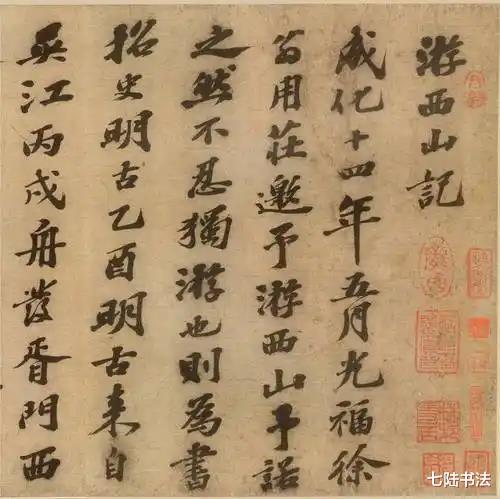 游西山記
成化十四年五月光福徐
翁用莊邀予游西山予諾
之然不忍獨游也則為書
招史明古乙酉明古來自
吳江丙戌舟發胥門西
七陆书法